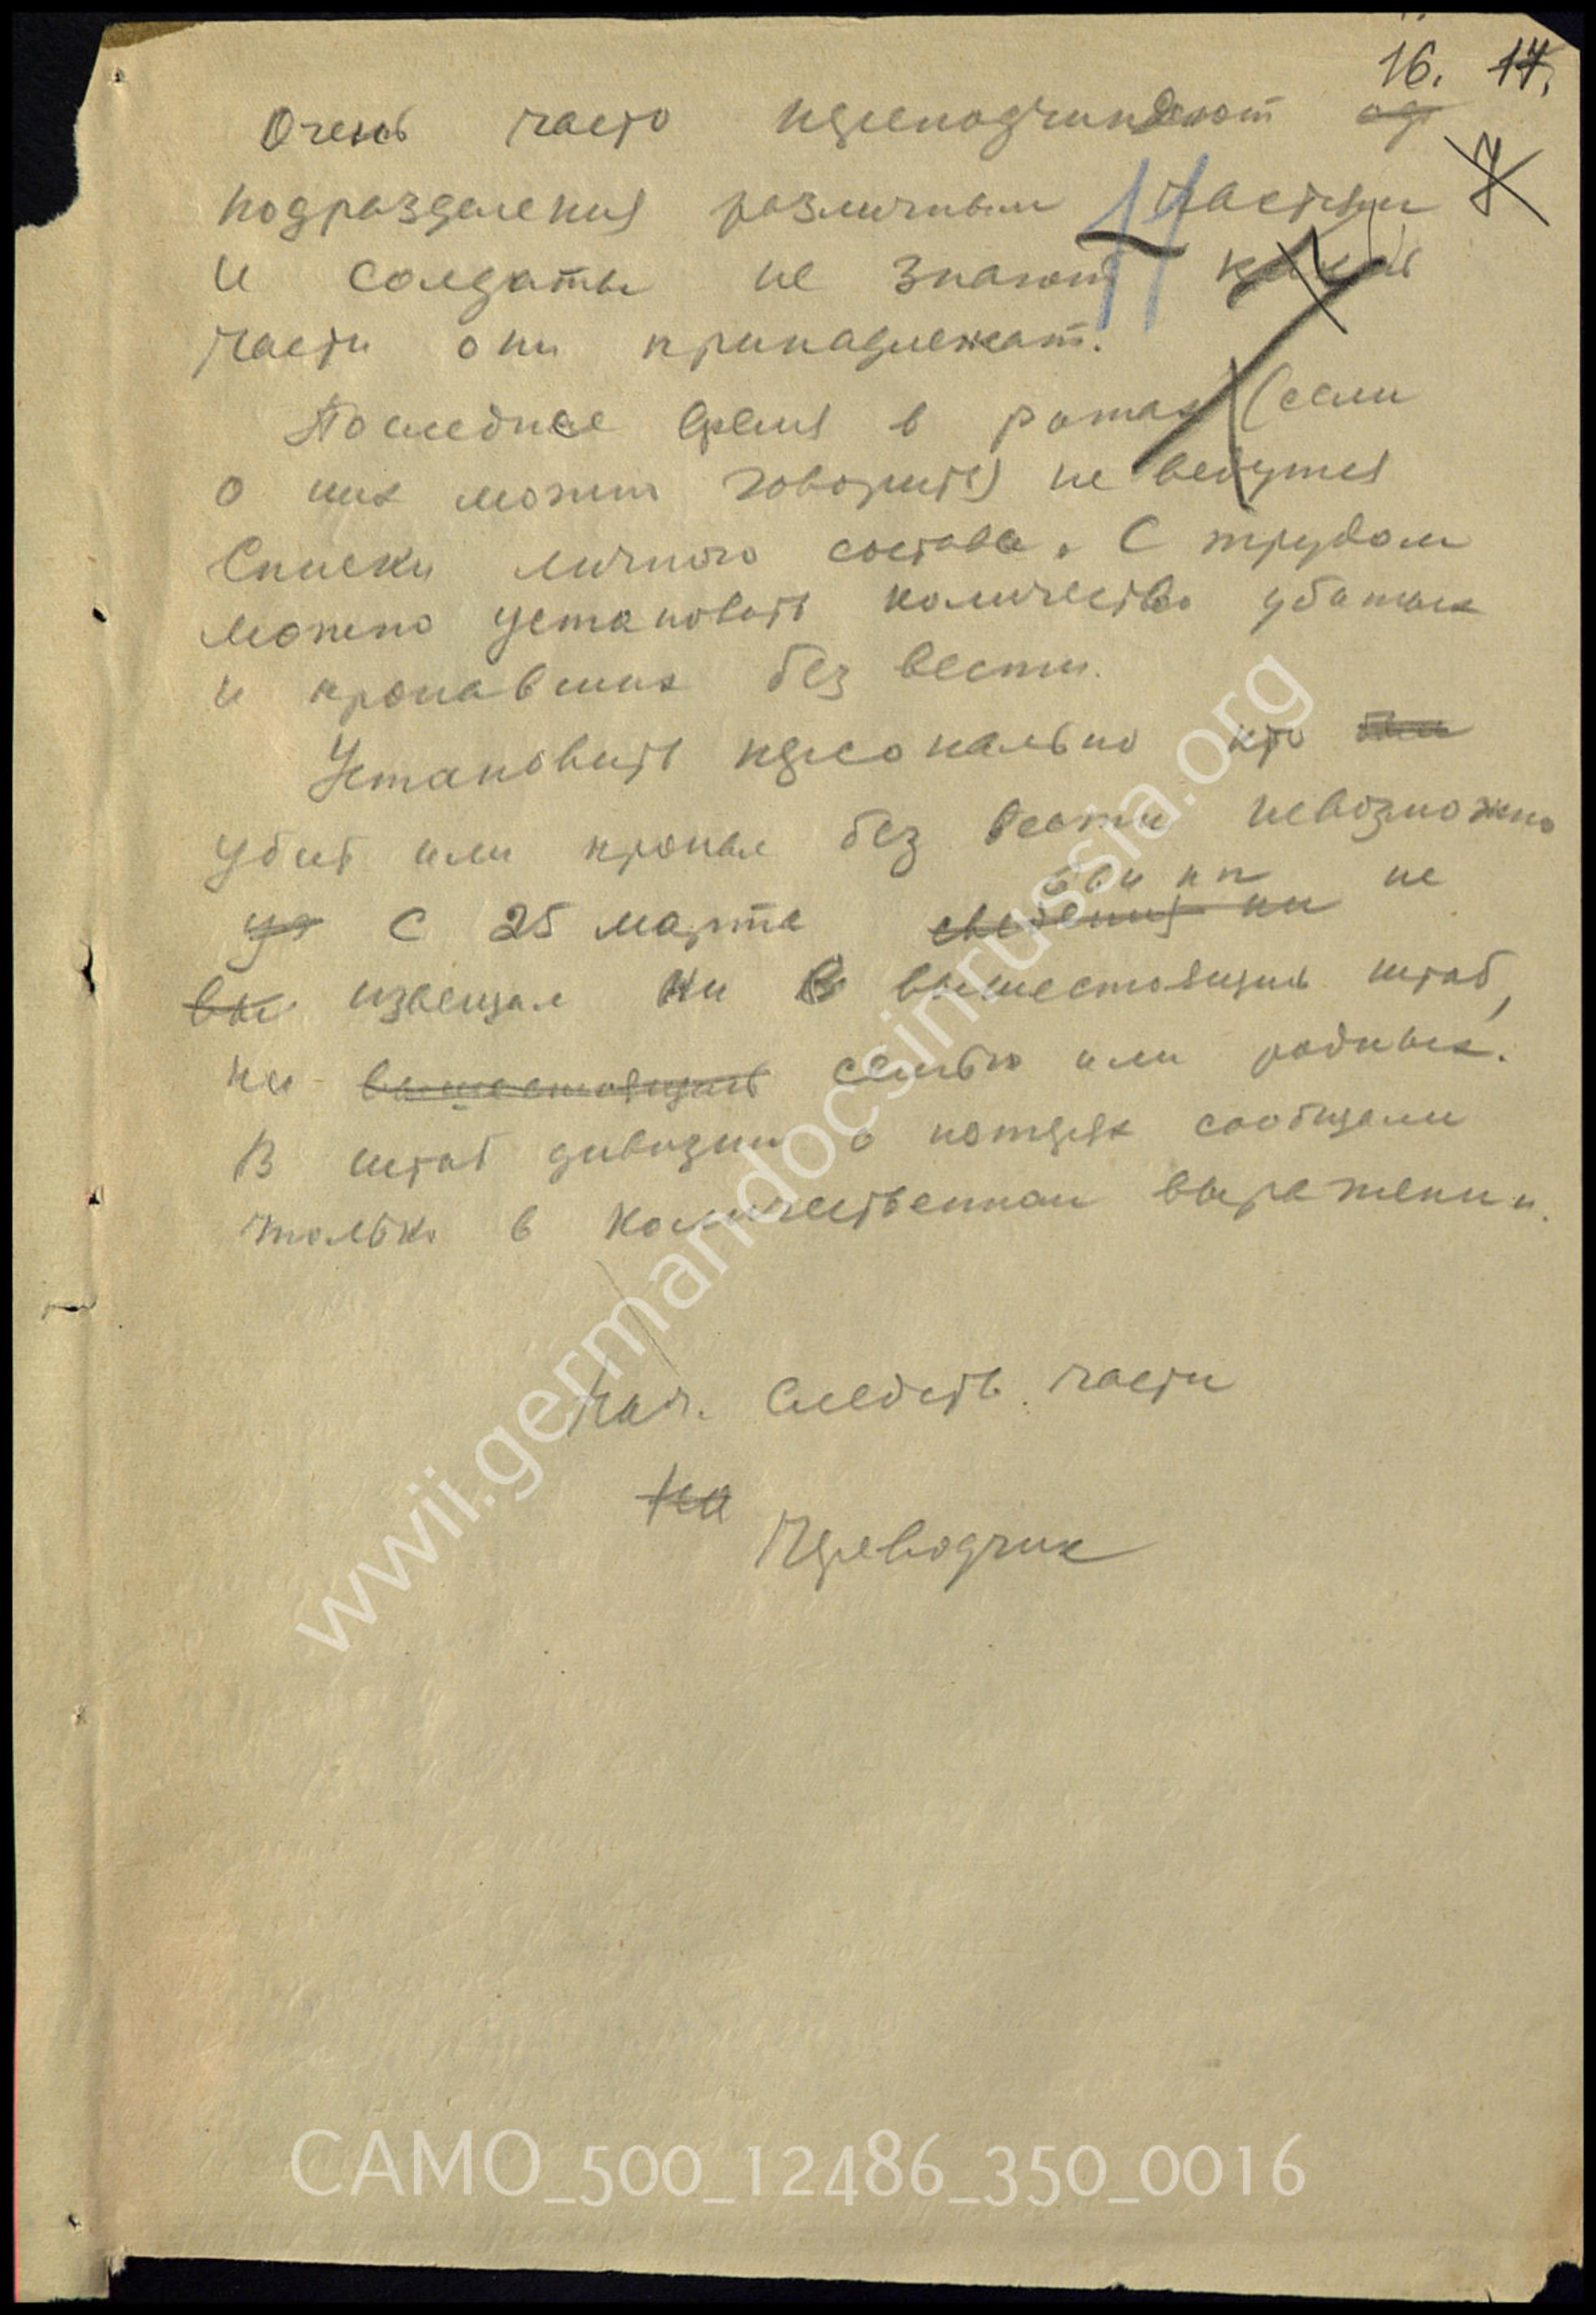 16. 17.
Очень часто переподчиняют од
7
подразделения различным частям
11
и солдаты не знают какой
части они принадлежат.
Последнее время в ротах (если
о них можно говорить) не ведутся
Списки личного состава. С трудом
можно установить количество убитых
и пропавших без вести.
Установить персонально кто
убит или пропал без вести невозможно
не
уб С 25 марта сведения ни
вы извещал ни в вышестоящий штаб,
ни вышестоящий семью или родных.
В штаб дивизии о потерях сообщали
только в количественном выражении.
Нач. Следств. части
На
Переводчик
www.ii.germandocsinrussia.org
CAMO_500_12486_350_0016